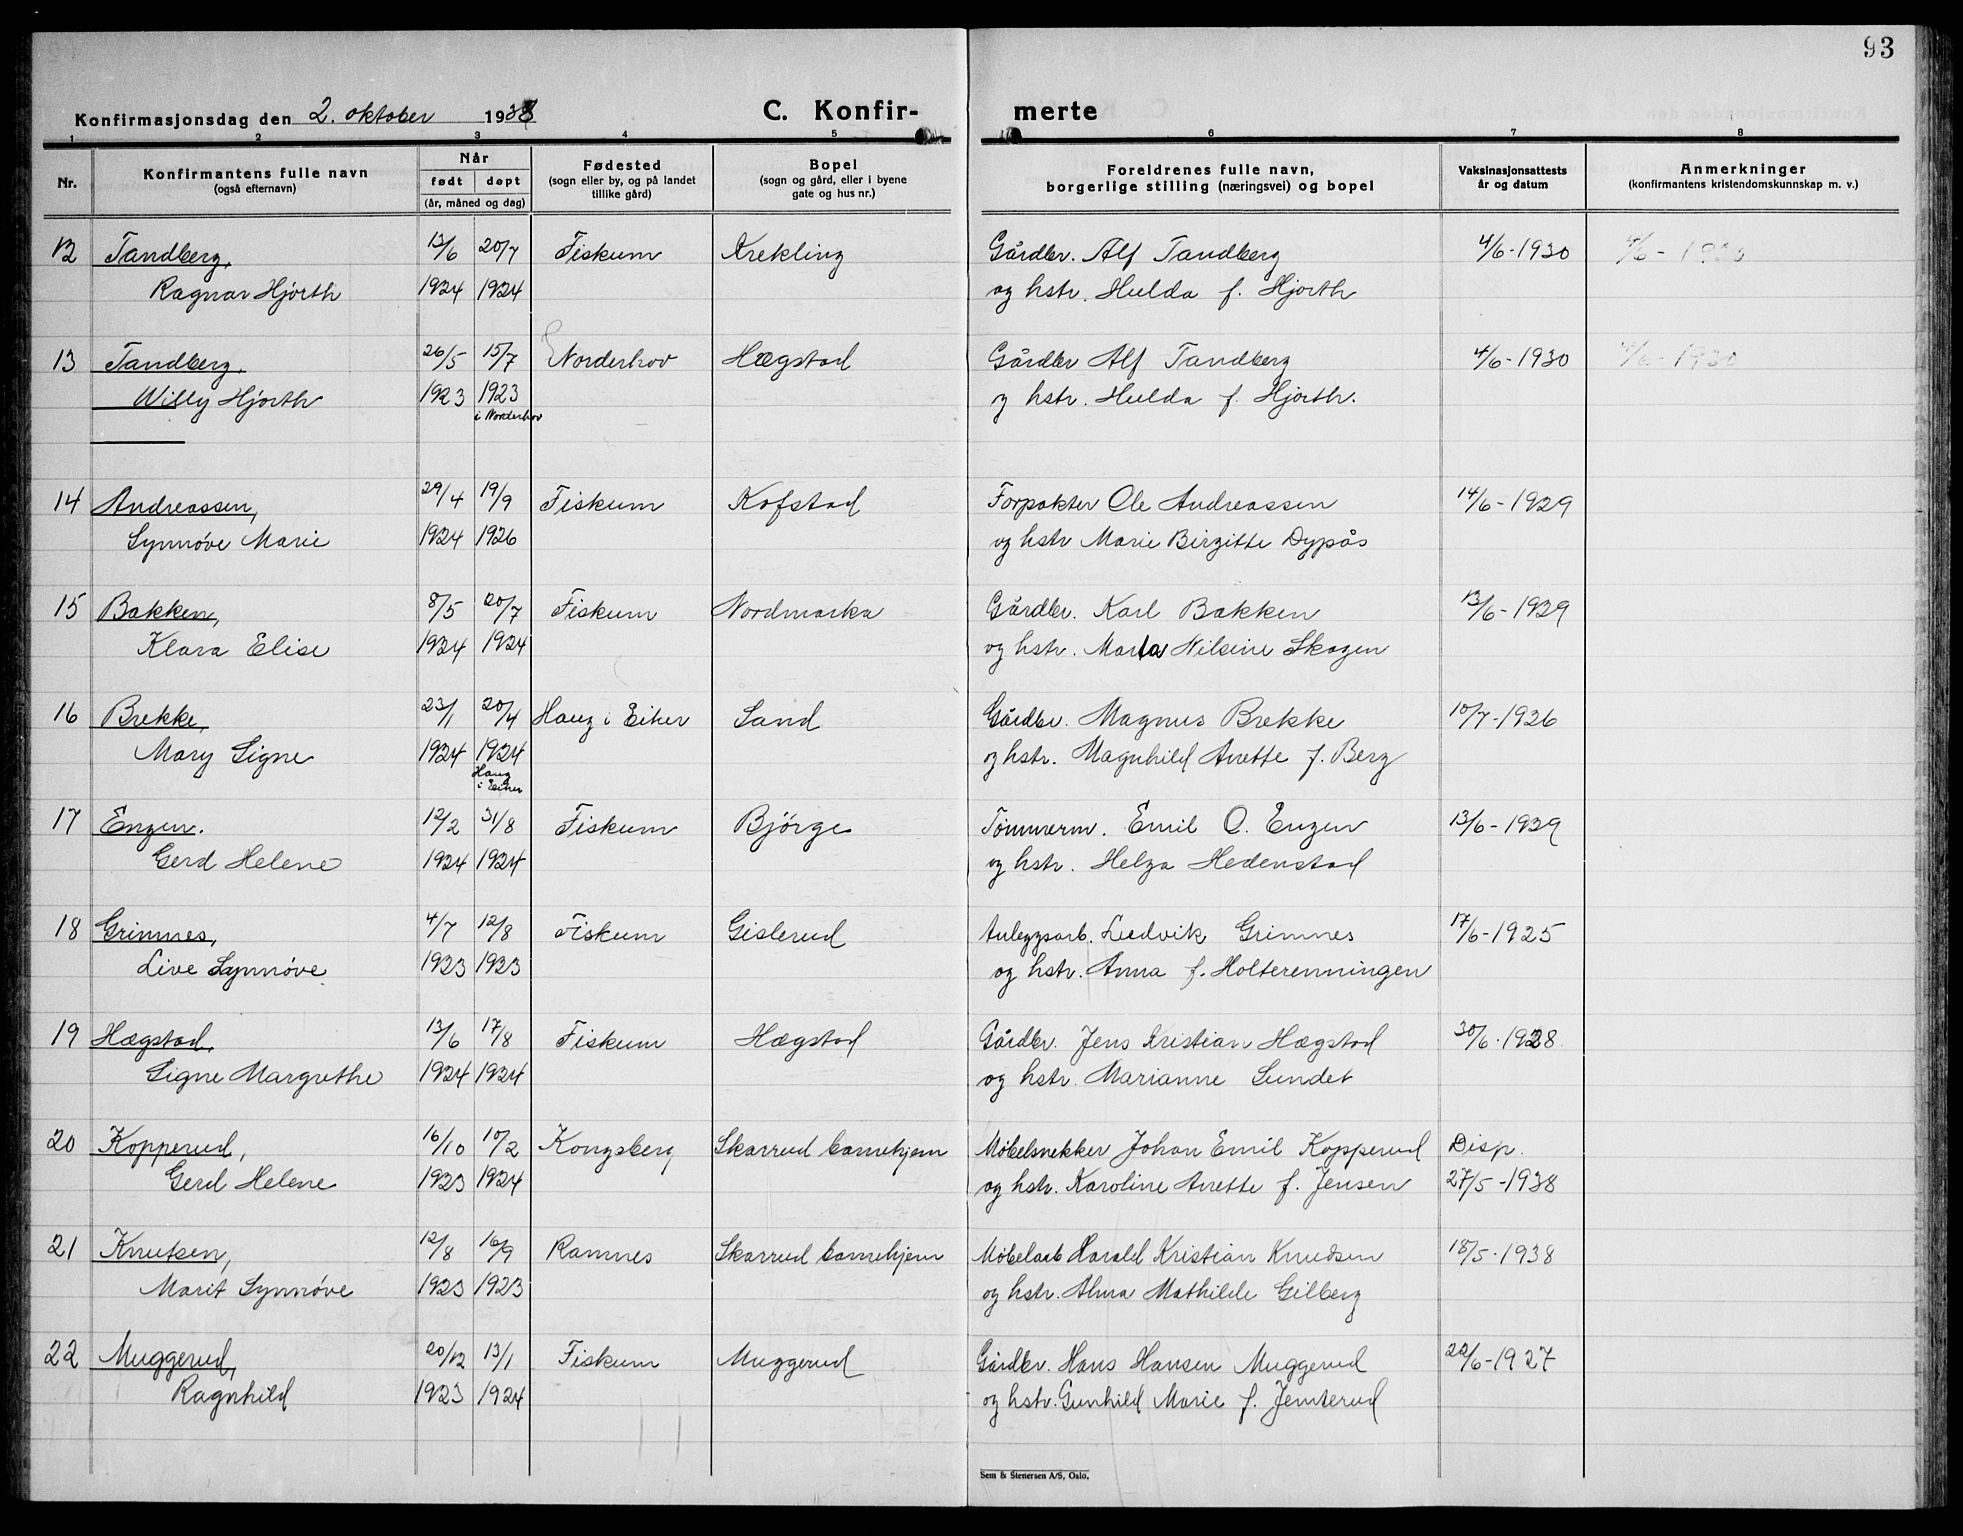 93
Konfirmasjonsdag den 2. oktober 1938
C. Konfir- merte
1 2 3 4 5 6 7 8
Nr.
Konfirmantens fulle navn
(også efternavn)
Når
født døpt
(år, måned og dag)
Fødested
(sogn eller by, og på landet
tillike gård)
Bopel
(sogn og gård, eller i byene
gate og hus nr.)
Foreldrenes fulle navn,
borgerlige stilling (næringsvei) og bopel
Vaksinasjonsattests
år og datum
Anmerkninger
(konfirmantens kristendomskunnskap m. v.)
12 Tandberg, 13/6 20/7 Fiskum Krekling Gårdbr. Alf Tandberg 4/6-1930 4/6-1930
Ragnar Hjorth 1924 1924 og hstr. Hulda f. Hjorth
13 Tandberg, 26/5 15/7 Norderhov Hægstad Gårdbr Alf Tandberg 4/6-1930 4/6-1930
Willy Hjorth 1923 1923 og hstr. Hulda f. Hjorth.
i Norderhov
14 Andreassen, 29/4 19/9 Fiskum Kofstad Forpakter Ole Andreassen 14/6-1929
Synnøve Marie 1924 1926 og hstr Marie Birgitte Dypås
15 Bakken, 8/5 20/7 Fiskum Nordmarka Gårdbr. Karl Bakken 13/6-1929
Klara Elise 1924 1924 og hstr. Marta Nilsine Skogen
16 Brekke, 23/1 20/4 Haug i Eiker Sand Gårdbr. Magnus Brekke 10/7-1926
Mary Signe 1924 1924 og hstr. Magnhild Anette f. Berg
Haug
i Eiker
17 Engen. 12/2 31/8 Fiskum Bjørge Tømmerm. Emil O. Engen 13/6-1929
Gerd Helene 1924 1924 og hstr. Helga Hedenstad
18 Grimnes, 4/7 12/8 Fiskum Gislerud Anleggsarb. Ludvik Grimnes 17/6-1925
Live Synnøve. 1923 1923 og hstr. Anna f. Holterenningen
19 Hægstad, 13/6 17/8 Fiskum Hægstad Gårdbr. Jens Kristian Hægstad 30/6-1928
Signe Margrethe 1924 1924 og hstr. Marianne Sundet
20 Kopperud, 16/10 10/2 Kongsberg Skarrud barnehjem Møbelsnekker Johan Emil Kopperud Disp.
Gerd Helene 1923 1924 og hstr. Karoline Anette f. Jensen 27/5-1938
21 Knutsen, 12/8 16/9 Ramnes Skarrud barnehjem Møbelarb Harald Kristian Knudsen 18/5-1938
Marit Synnøve 1923 1923 og hstr. Alma Mathilde Gilberg
22 Muggerud, 20/12 13/1 Fiskum Muggerud Gårdbr. Hans Hansen Muggerud 22/6-1927
Ragnhild 1923 1924 og hstr. Gunhild Marie f. Jemterud
Sem & Stenersen A/S, Oslo.